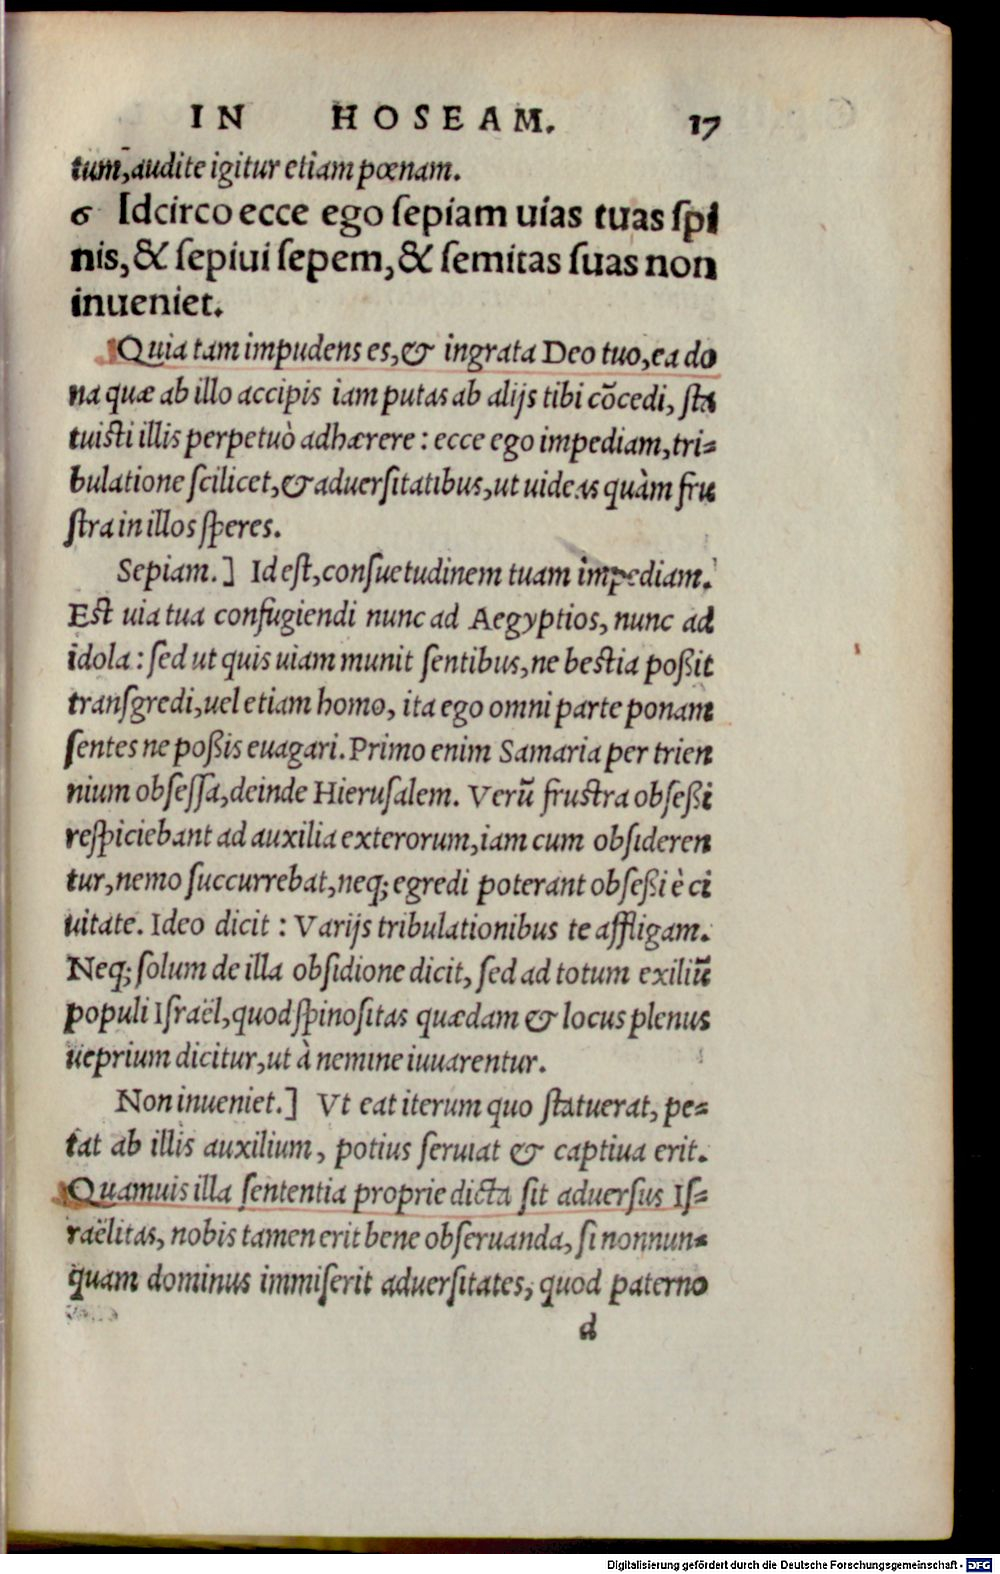 IN HOSEAM. 17
tum, audite igitur etiam pœnam.
6 Idcirco ecce ego sepiam uías tuas spi
nis, & sepiui sepem, & semitas suas non
inueniet.
Quia tam impudens es, & ingrata Deo tuo, ea do
na quæ ab illo accipis iam putas ab alijs tibi cõcedi, sta
tuisti illis perpetuò adhærere : ecce ego impediam, tri=
bulatione scilicet, & aduersitatibus, ut uideas quàm fru
stra in illos speres.
Sepiam.] Id est, consuetudinem tuam impediam.
Est uia tua confugiendi nunc ad Aegyptios, nunc ad
idola : sed ut quis uiam munit sentibus, ne bestia poßit
transgredi, uel etiam homo, ita ego omni parte ponam
sentes ne poßis euagari. Primo enim Samaria per trien
nium obsessa, deinde Hierusalem. Verũ frustra obseßi
respiciebant ad auxilia exterorum, iam cum obsideren
tur, nemo succurrebat, neq; egredi poterant obseßi è ci
uitate. Ideo dicit : Varijs tribulationibus te affligam.
Neq; solum de illa obsidione dicit, sed ad totum exiliũ
populi Israël, quod spinositas quædam & locus plenus
ueprium dicitur, ut à nemine iuuarentur.
Non inueniet.] Vt eat iterum quo statuerat, pe=
tat ab illis auxilium, potius seruiat & captiua erit.
Quamuis illa sententia proprie dicta sit aduersus Is=
raëlitas, nobis tamen erit bene obseruanda, si nonnun=
quam dominus immiserit aduersitates, quod paterno
d
Digitalisierung gefördert durch die Deutsche Forschungsgemeinschaft - DFG